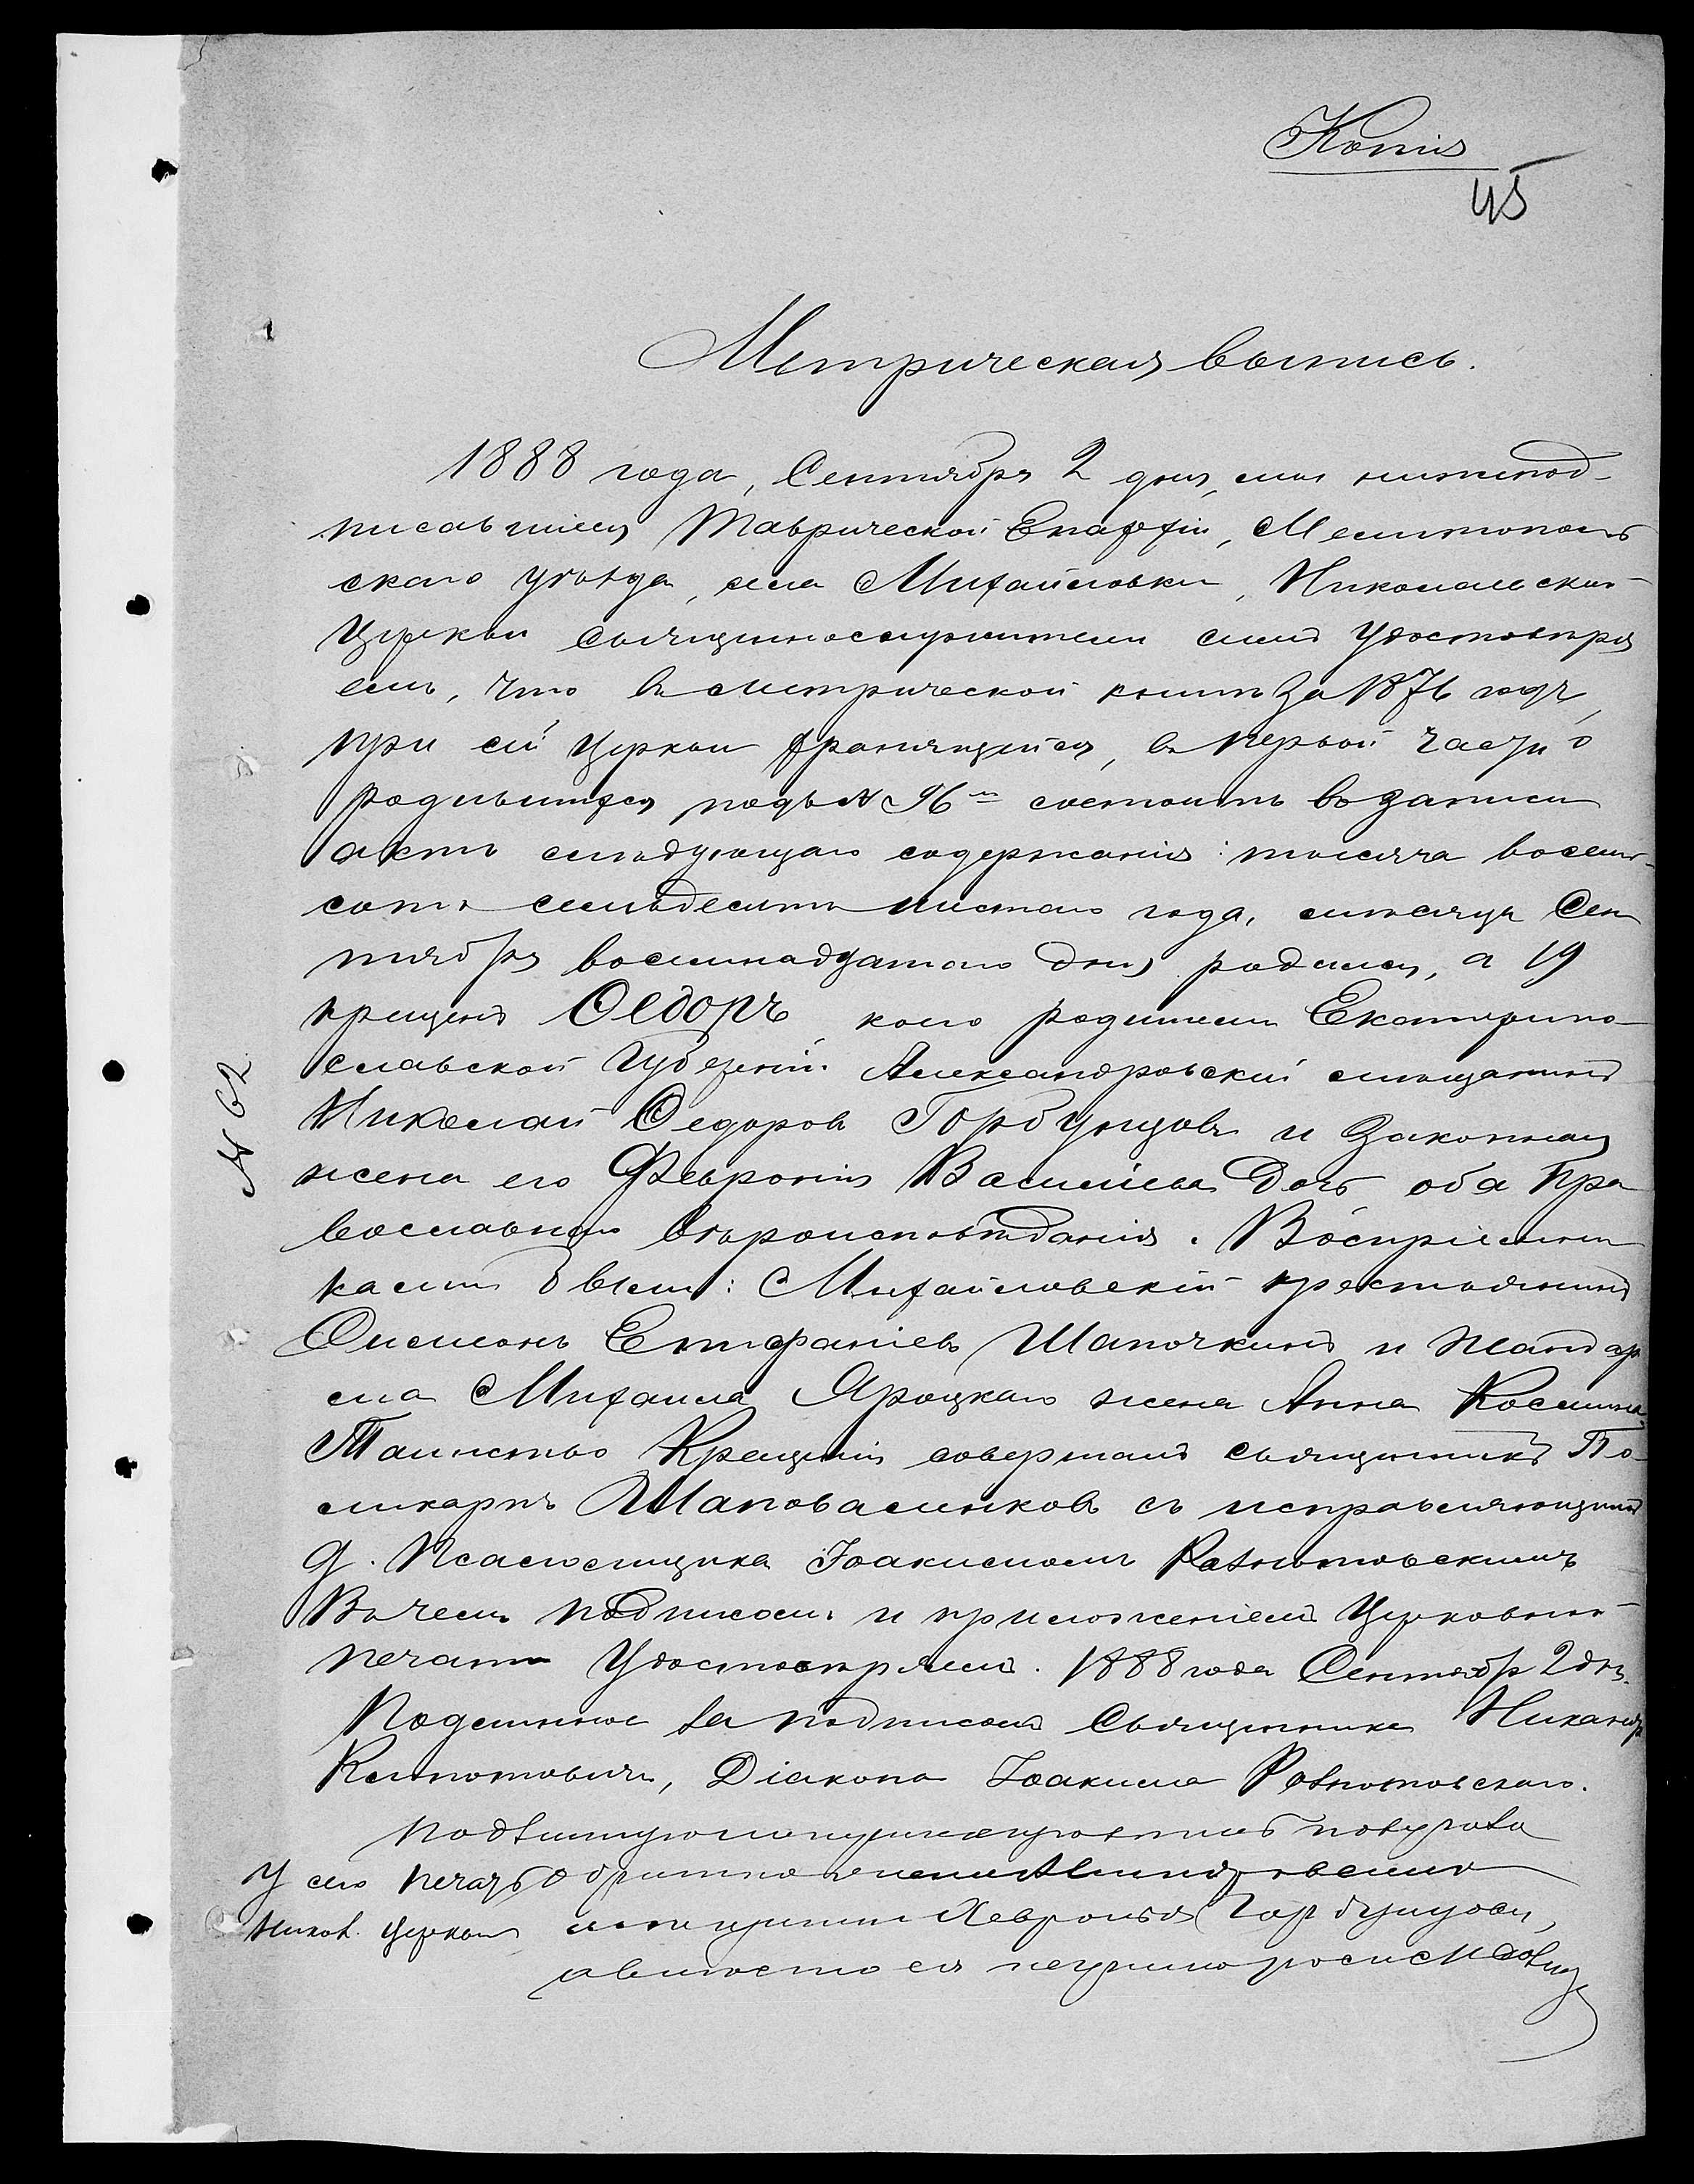 Копія
45
Метрическая выпись.
1888 года, Сентября 2 дня, мы нижепод-
писавшіеся Таврической Епархіи, Мелитополь
скаго уѣзда, села Михайловки, Николаевской
Церкви священнослужители симъ удостовѣря
емъ, что въ метрической книгѣ за 1876 годъ,
при сей церкви хранящейся, въ первой части о
родившихся подъ № 96м состоитъ въ записи
актъ слѣдующаго содержанія: тысяча восемь-
сотъ семьдесятъ шестаго года, мѣсяца Сен
тября восемнадцатаго дня родился, а 19
крещенъ Ѳедоръ, коего родители Екатерино-
славской Губерніи Александровскій мѣщанинъ
Николай Ѳедоровъ Горбунцовъ и законная
жена его Февронія Васильева Дочь оба Пра
вославнаго вѣроисповѣданія. Воспріемни
ками были: Михайловскій крестьянинъ
Филимонъ Епифаніевъ Шапочкинъ и Жандар
ма Михаила Яроцкаго жена Анна Космина.
Таинство Крещенія совершалъ священникъ По-
ликарпъ Шаповаленковъ съ исправляющимъ
д. Псаломщика Іоакимомъ
Въ чемъ подписомъ и приложеніемъ Церковной
печати Удостовѣряемъ. 1888 года Сентябр 2 дня.
Подлинное за подписомъ Священника Никандр
Діакона Іоакима
У сего печать
Никол. Церкви
Хевронья Горбунцова,
№ 62